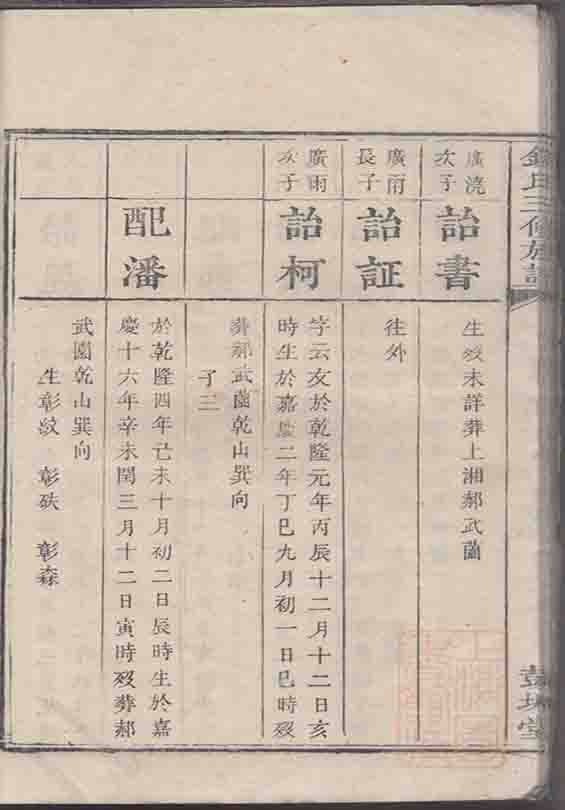 氏三修族譜
堂
廣澆
次子
詒書
生歿未詳葬上湘郝武薗
廣雨
長子
詒証
往外
廣雨
次子
詒柯
字云友於乾隆元年丙辰十二月十二日亥
時生於嘉慶二年丁巳九月初一日巳時歿
葬郝武薗乾山巽向
子三
配潘
於乾隆四年己未十月初二日辰時生於嘉
慶十六年辛未閏三月十二日寅時歿葬郝
武園乾山巽向
生彰紋 彰砆 彰森